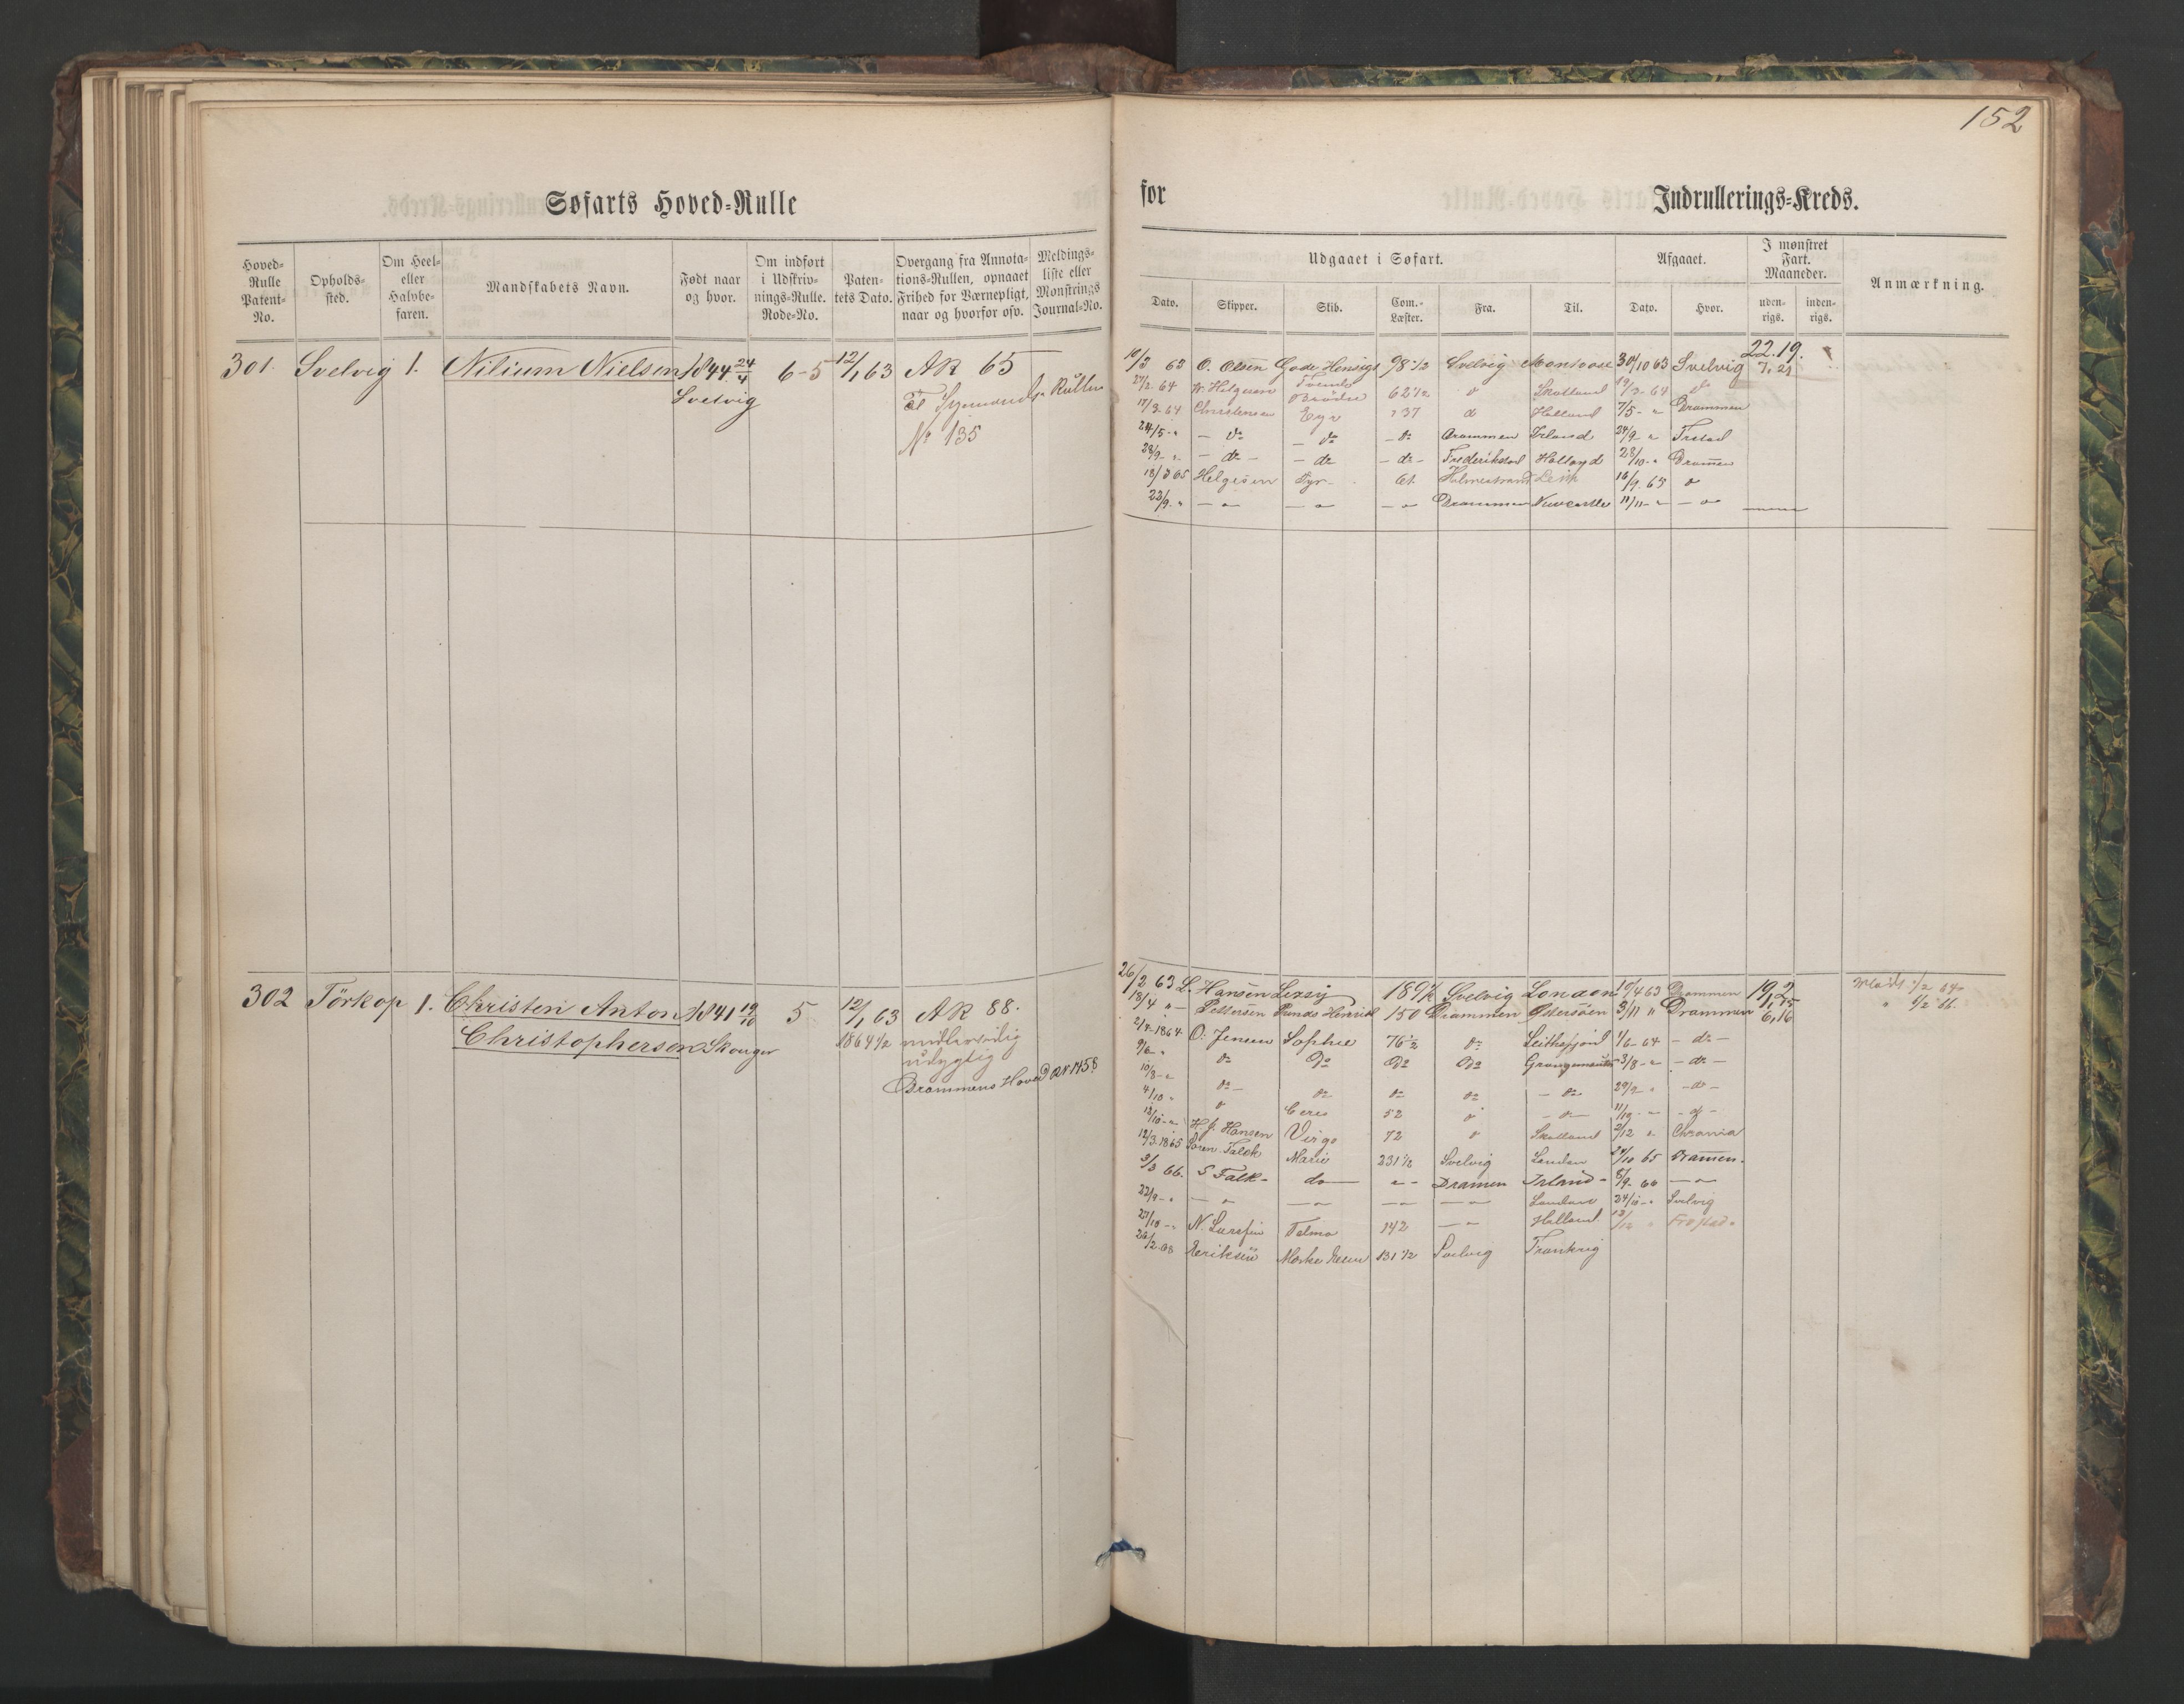 152
Søfarts Hoved-Rulle
for Indrullerings-Kreds.
Hoved-Rulle Patent-No.
Opholds-sted.
Om Heel- eller Halvbe-faren.
Mandskabets Navn.
Født naar og hvor.
Om indført i Udskriv-nings-Rulle. Rode-No.
Paten-tets Dato.
Overgang fra Annota-tions-Rullen, opnaaet Frihed for Værnepligt, naar og hvorfor osv.
Meldings-liste eller Mønstrings Journal-No.
Udgaaet i Søfart.
Afgaaet.
I mønstret Fart. Maaneder.
Anmærkning.
Dato. Skipper. Skib. Com.-Læster. Fra. Til. Dato. Hvor. uden-rigs. inden-rigs.
301. Svelvig 1. Nilium Nielsen 1844 24/4 6-5 12/1 63 AR 65
Svelvig
Rullen
No 135
10/3 63 O. Olsen Gode Hensigt 98 1/2 Svelvig Montrose 30/10 63 Svelvig 22.19.
7,21
62 1/2 do Skotland 19/3 64 do
17/3 64 Christensen 137 do Holland 7/5 - " Drammen
24/5 - " - do - do - do Drammen Irland 24/9 - " Frstad
28/9 - " - do - - do - do - Frederikstad Holland 28/10 - " Drammen
18/3 65 Helgesen Tyr 61 Holmestrand Leith 16/9 65 do
23/9 - " - " - " - " Drammen Newcastle 11/11 - " - "
302 Törkop 1. Christen Anton 1841 19/10 5 12/1 63 AR 88.
Christophersen Skouger 1864 1/2 midlertidig
udygtig
Drammens Hoved AR 1458
26/2 63 L. Hansen 189 1/2 Svelvig London 10/4 63 Drammen 19,2
18/4 " - Pettersen 150 Drammen Østersøen 3/11 " Drammen 6,16
2/4 - 1864 O. Jensen Sophie 76 1/2 do 1/6 - 64 - do -
9/6 - " do do do do 3/8 - " - do -
10/8 - " do - do do do - do 29/9 - " - do -
4/10 - " do Ceres 52 do - do - - do -
H. J. Hansen Virgo 72 do Skotland 2/12 " Chrania
12/3 1865 Søren Falck Marie 231 1/2 Svelvig London 29/10 65 Dramen.
3/3 66. S Falk - do - " - Dramen Irland - 8/9 - 66 - "
22/9 - " - " - " - " - " London 24/10 - " Svelvig
27/10 - " N. Larssen Telma 142 - " Holland Frstad
26/2 68 Eriksen 131 1/2 Svelvig Frankrig